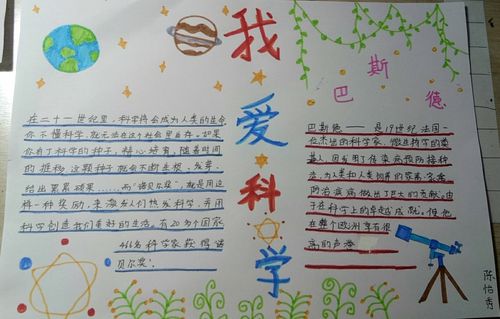 我爱科学
在二十一世纪里,科学将会成为人类的生命
你不懂科学,就无法在这个社会里生存。如果
你有了科学的种子,精心培育,随着时间
的推移,这颗种子就会不断生根、发芽
给出累累硕果……而"诺贝尔奖",就是用这
样一种奖励,来激发人们热爱科学,并用
科学创造我们美好的生活。有20多个国家
466名科学家获得诺
贝尔奖。
巴斯德
巴斯德——是19世纪法国一
位杰出的科学家,微生物学的奠
基人。因发明了传染病预防接种
法,为人类和人类饲养的家畜、家禽
防治疾病做出了巨大的贡献。由
于在科学上的卓越成就,使他
在整个欧洲享有很
高的声誉
陈怡秀